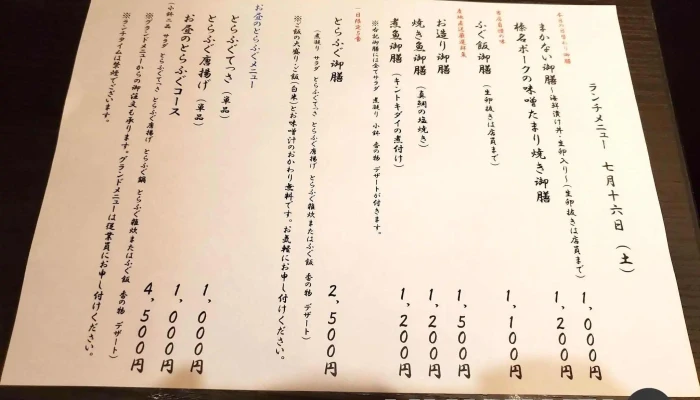 ランチメニュー 七月十六日 (土)
本日の日替わり御膳
まかない御膳~海鮮漬け丼・生卵入り~(生卵抜きは店員まで) 1,000円
榛名ポークの味噌たまり焼き御膳 1,200円
当店自慢の味
ふぐ飯御膳 (生卵抜きは店員まで) 1,100円
産地直送厳選鮮魚
お造り御膳 1,500円
焼き魚御膳 (真鯛の塩焼き) 1,200円
煮魚御膳 (キントキダイの煮付け) 1,200円
※右記御膳には全てサラダ 煮凝り 小鉢 香の物 デザートが付きます。
一日限定5食
とらふぐ御膳 2,500円
(煮凝り サラダ とらふぐてっさ とらふぐ唐揚げ とらふぐ雑炊またはふぐ飯 香の物 デザート)
※ご飯の大盛り(ふぐ飯・白米)とお味噌汁のおかわり無料です。お気軽にお申し付けください。
お昼のとらふぐメニュー
とらふぐてっさ (単品) 1,000円
とらふぐ唐揚げ (単品) 1,000円
お昼のとらふぐコース 4,500円
(小鉢二品 サラダ とらふぐてっさ とらふぐ唐揚げ とらふぐ鍋 とらふぐ雑炊またはふぐ飯 香の物 デザート)
※グランドメニューからの御注文も承ります。グランドメニューは従業員にお申し付けください。
※ランチタイムは禁煙でございます。